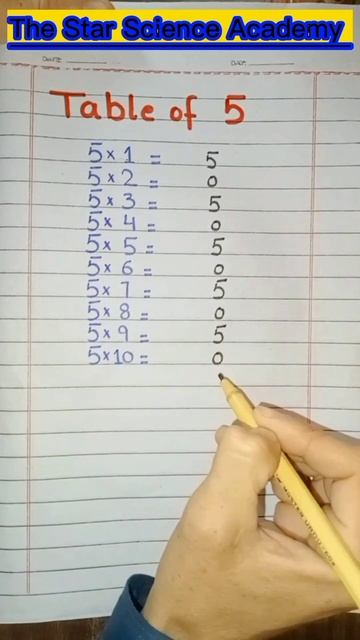 The Star Science Academy
DATE:
DAY:
Table of 5
5 × 1 = 5
5 × 2 = 0
5 × 3 = 5
5 × 4 = 0
5 × 5 = 5
5 × 6 = 0
5 × 7 = 5
5 × 8 = 0
5 × 9 = 5
5 × 10 = 0